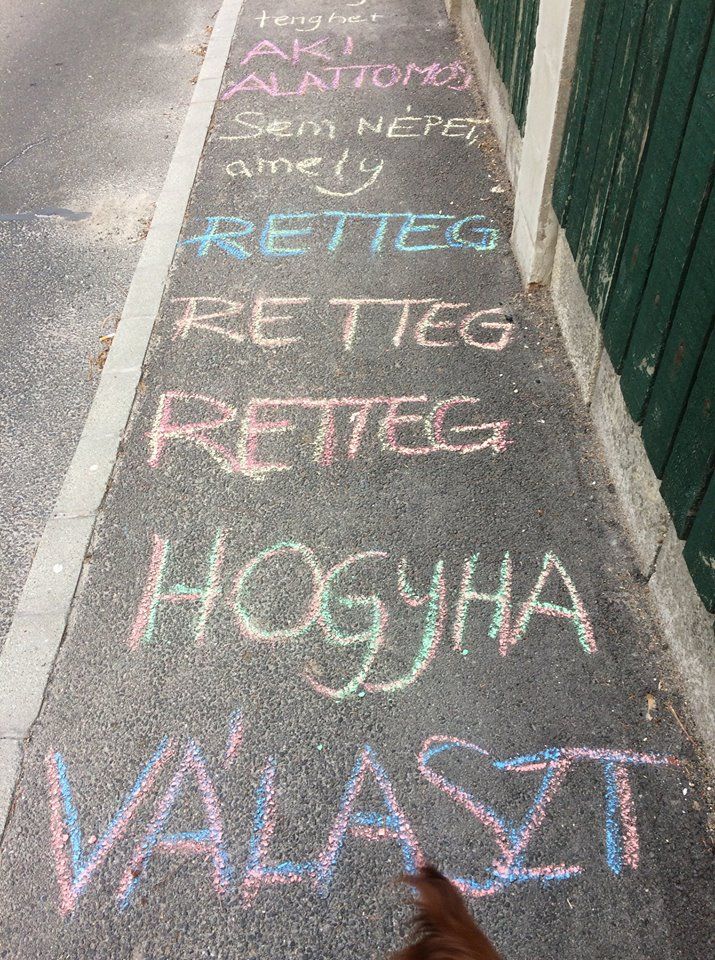 tenghet
AKI
ALATTOMOS,
Sem NÉPET,
amely
RETTEG
RETTEG
RETTEG
HOGYHA
VÁLASZT